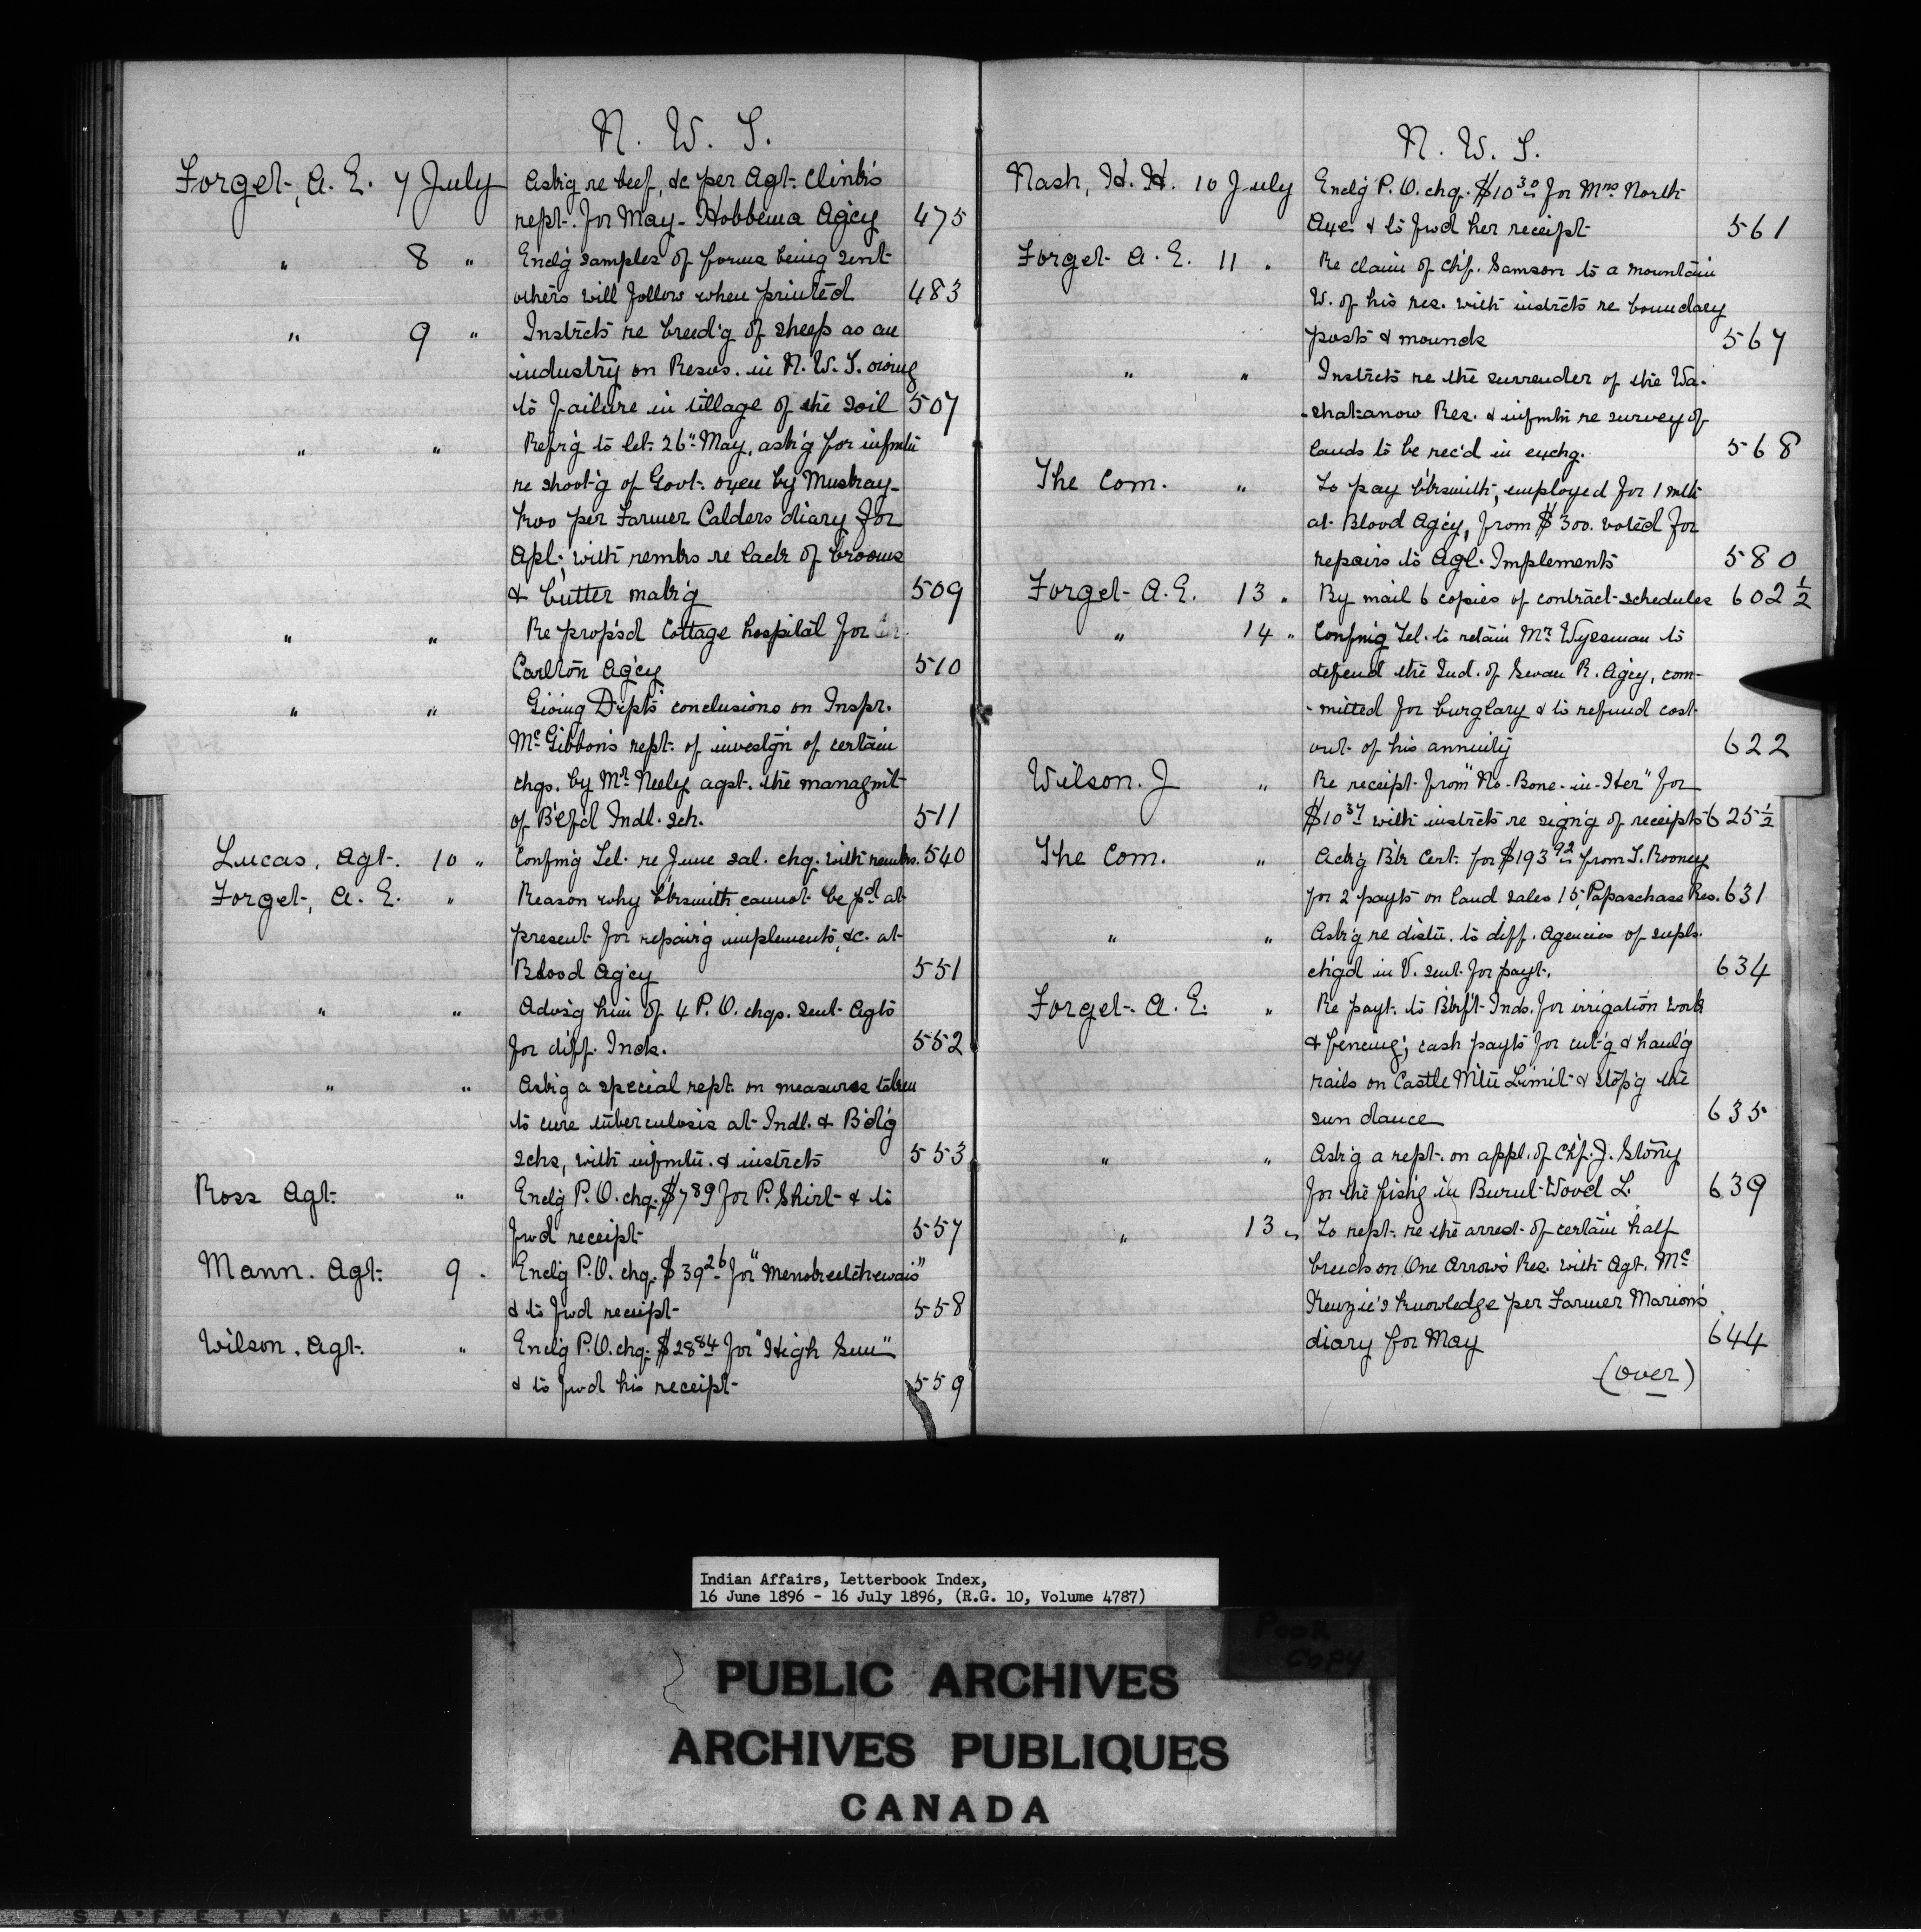 N. W. T.
Forget, A. E. 7 July Ask'g re beef, &c per Agt. Clink's
rept. for May - Hobbema Agcy 475
" 8 " Encl'g samples of forms being sent
others will follow when printed 483
" 9 " Instrcts re breed'g of sheep as an
industry on Resvs. in N. W. T. owing
to failure in tillage of the soil 507
" " Refr'g to let. 26" May, ask'g for infmtn
re shoot'g of Govt. oxen by Muskay-
kwo per Farmer Calders diary for
Apl; with remks re lack of brooms
& butter mak'g 509
" " Re prop'sd Cottage hospital for
Carlton Agcy 510
" " Giving Dept's conclusions on Inspr.
McGibbon's rept. of investg'n of certain
chgs. by Mr. Neely agst. the managmt
of B'ef'd Indl. sch. 511
Lucas, Agt. 10 " Confmg Tel. re June sal. chq. with remks. 540
Forget, A. E. " Reason why b'ksmith cannot be pd at
present for repair'g implements, &c. at
Blood Agcy 551
" " Advs'g him of 4 P. O. chqs. sent Agts
for diff. Inds. 552
" " Ask'g a special rept. on measures taken
to cure tuberculosis at Indl. & B'd'g
schs, with infmtn. & instrcts 553
Ross Agt. " Encl'g P. O. chq. $789 for P. Shirt & to
fwd receipt 557
Mann. Agt. 9 . Encl'g P. O. chq. $39 26 for "
& to fwd receipt 558
Wilson. Agt. " Encl'g P. O. chq. $28 84 for "High Sun"
& to fwd his receipt 559
N. W. T.
Nash, H. H. 10 July Encl'g P. O. chq. $10 30 for Mrs North
Axe & to fwd her receipt 561
Forget A. E. 11 " Re claim of Chf. Samson to a mountain
W. of his res. with instrcts re boundary
posts & mounds 567
" " Instrcts re the surrender of the Wa-
-shatanow Res. & infmtn re survey of
lands to be rec'd in exchg. 568
The Com. " To pay b'ksmith, employed for 1 mth
at Blood Agcy, from $300. voted for
repairs to Agl. Implements 580
Forget A. E. 13 " By mail 6 copies of contract schedules 602 1/2
" 14 " Confmg Tel. to retain Mr. Wyseman to
defend the Ind. of Swan R. Agcy, com-
-mitted for burglary & to refund cost
out of his annuity 622
Wilson. J " Re receipt from "No-Bone-in-Her" for
$10 37 with instrcts re sign'g of receipts 625 1/2
The Com. " Ack'g Bk Cert. for $193 92 from T. Rooney
for 2 payts on land sales 15, Papaschase Res. 631
" " Ask'g re distn. to diff. Agencies of supls.
ch'gd in V. sent for payt. 634
Forget A. E. " Re payt. to Bkf't Inds. for irrigation work
& fencing; cash payts for cut'g & haul'g
rails on Castle Mtn Limit & stop'g the
sun dance 635
" " Ask'g a rept. on appl. of Chf. J. Stony
for the fish'g in Burnt-Wood L. 639
" 13 " To rept. re the arrest of certain half
breeds on One Arrow's Res. with Agt. Mc
Kenzie's knowledge per Farmer Marion's
diary for May 644
(over)
Indian Affairs, Letterbook Index,
16 June 1896 - 16 July 1896, (R.G. 10, Volume 4787)
POOR
COPY
PUBLIC ARCHIVES
ARCHIVES PUBLIQUES
CANADA
SAFETY FILM